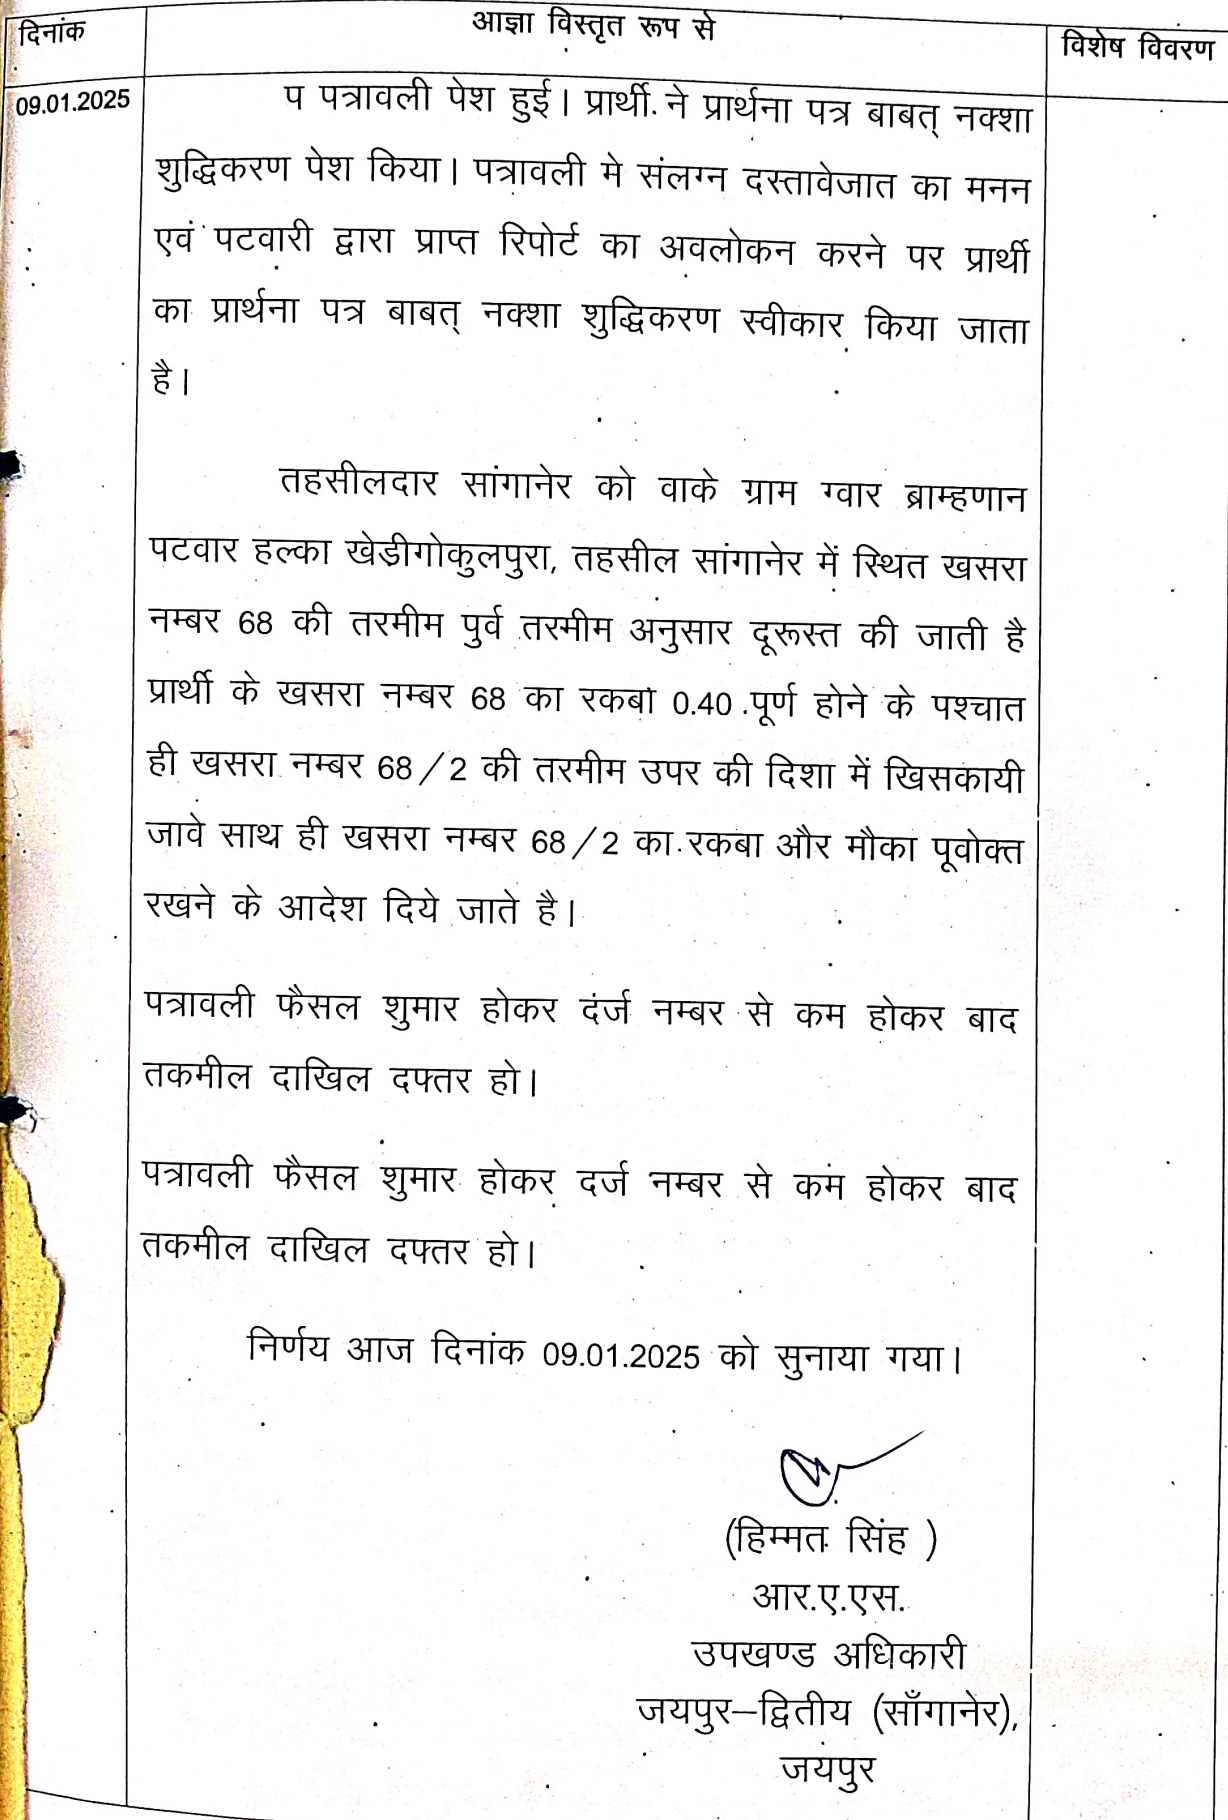 दिनांक
आज्ञा विस्तृत रूप से
विशेष विवरण
09.01.2025
प पत्रावली पेश हुई। प्रार्थी ने प्रार्थना पत्र बाबत् नक्शा
शुद्धिकरण पेश किया। पत्रावली मे संलग्न दस्तावेजात का मनन
एवं पटवारी द्वारा प्राप्त रिपोर्ट का अवलोकन करने पर प्रार्थी
का प्रार्थना पत्र बाबत् नक्शा शुद्धिकरण स्वीकार किया जाता
है।
तहसीलदार सांगानेर को वाके ग्राम ग्वार ब्राम्हणान
पटवार हल्का खेडीगोकुलपुरा, तहसील सांगानेर में स्थित खसरा
नम्बर 68 की तरमीम पुर्व तरमीम अनुसार दूरूस्त की जाती है
प्रार्थी के खसरा नम्बर 68 का रकबा 0.40 पूर्ण होने के पश्चात
ही खसरा नम्बर 68/2 की तरमीम उपर की दिशा में खिसकायी
जावे साथ ही खसरा नम्बर 68/2 का रकबा और मौका पूवोक्त
रखने के आदेश दिये जाते है।
पत्रावली फैसल शुमार होकर दर्ज नम्बर से कम होकर बाद
तकमील दाखिल दफ्तर हो।
पत्रावली फैसल शुमार होकर दर्ज नम्बर से कम होकर बाद
तकमील दाखिल दफ्तर हो।
निर्णय आज दिनांक 09.01.2025 को सुनाया गया।
(हिम्मत सिंह )
आर.ए.एस.
उपखण्ड अधिकारी
जयपुर–द्वितीय (साँगानेर),
जयपुर